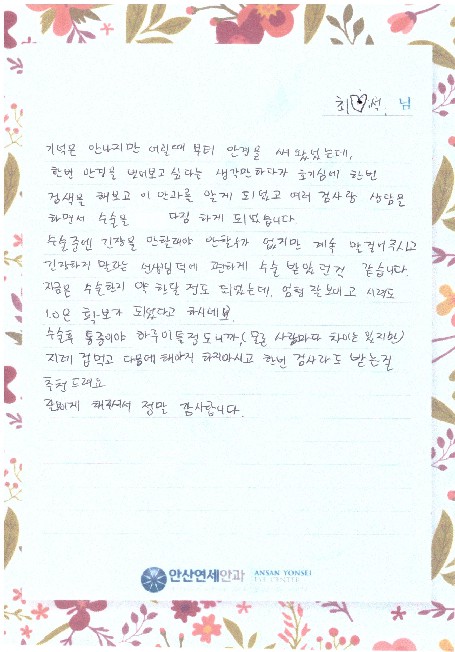 최♡석 님
기억은 안나지만 어릴때 부터 안경을 써 왔었는데,
한번 안경을 벗어보고 싶다는 생각만하다가 호기심에 한번
검색을 해보고 이 안과를 알게 되었고 여러 검사랑 상담을
하면서 수술을 다짐 하게 되었습니다.
수술중엔 긴장을 안할래야 안할수가 없지만 계속 말걸어주시고
긴장하지 말라는 선생님 덕에 편하게 수술 받았던것 같습니다.
지금은 수술한지 약 한달 정도 되었는데, 엄청 잘보이고 시력도
1.0은 확보가 되었다고 하시네요.
수술후 통증이야 하루이틀정도니까 (물론 사람마다 차이는 있지만)
지레 겁먹고 다음에 해야지 하지마시고 한번 검사라도 받는걸
추천 드려요
잘보이게 해주셔서 정말 감사합니다.
안산연세안과 ANSAN YONSEI
EYE CENTER